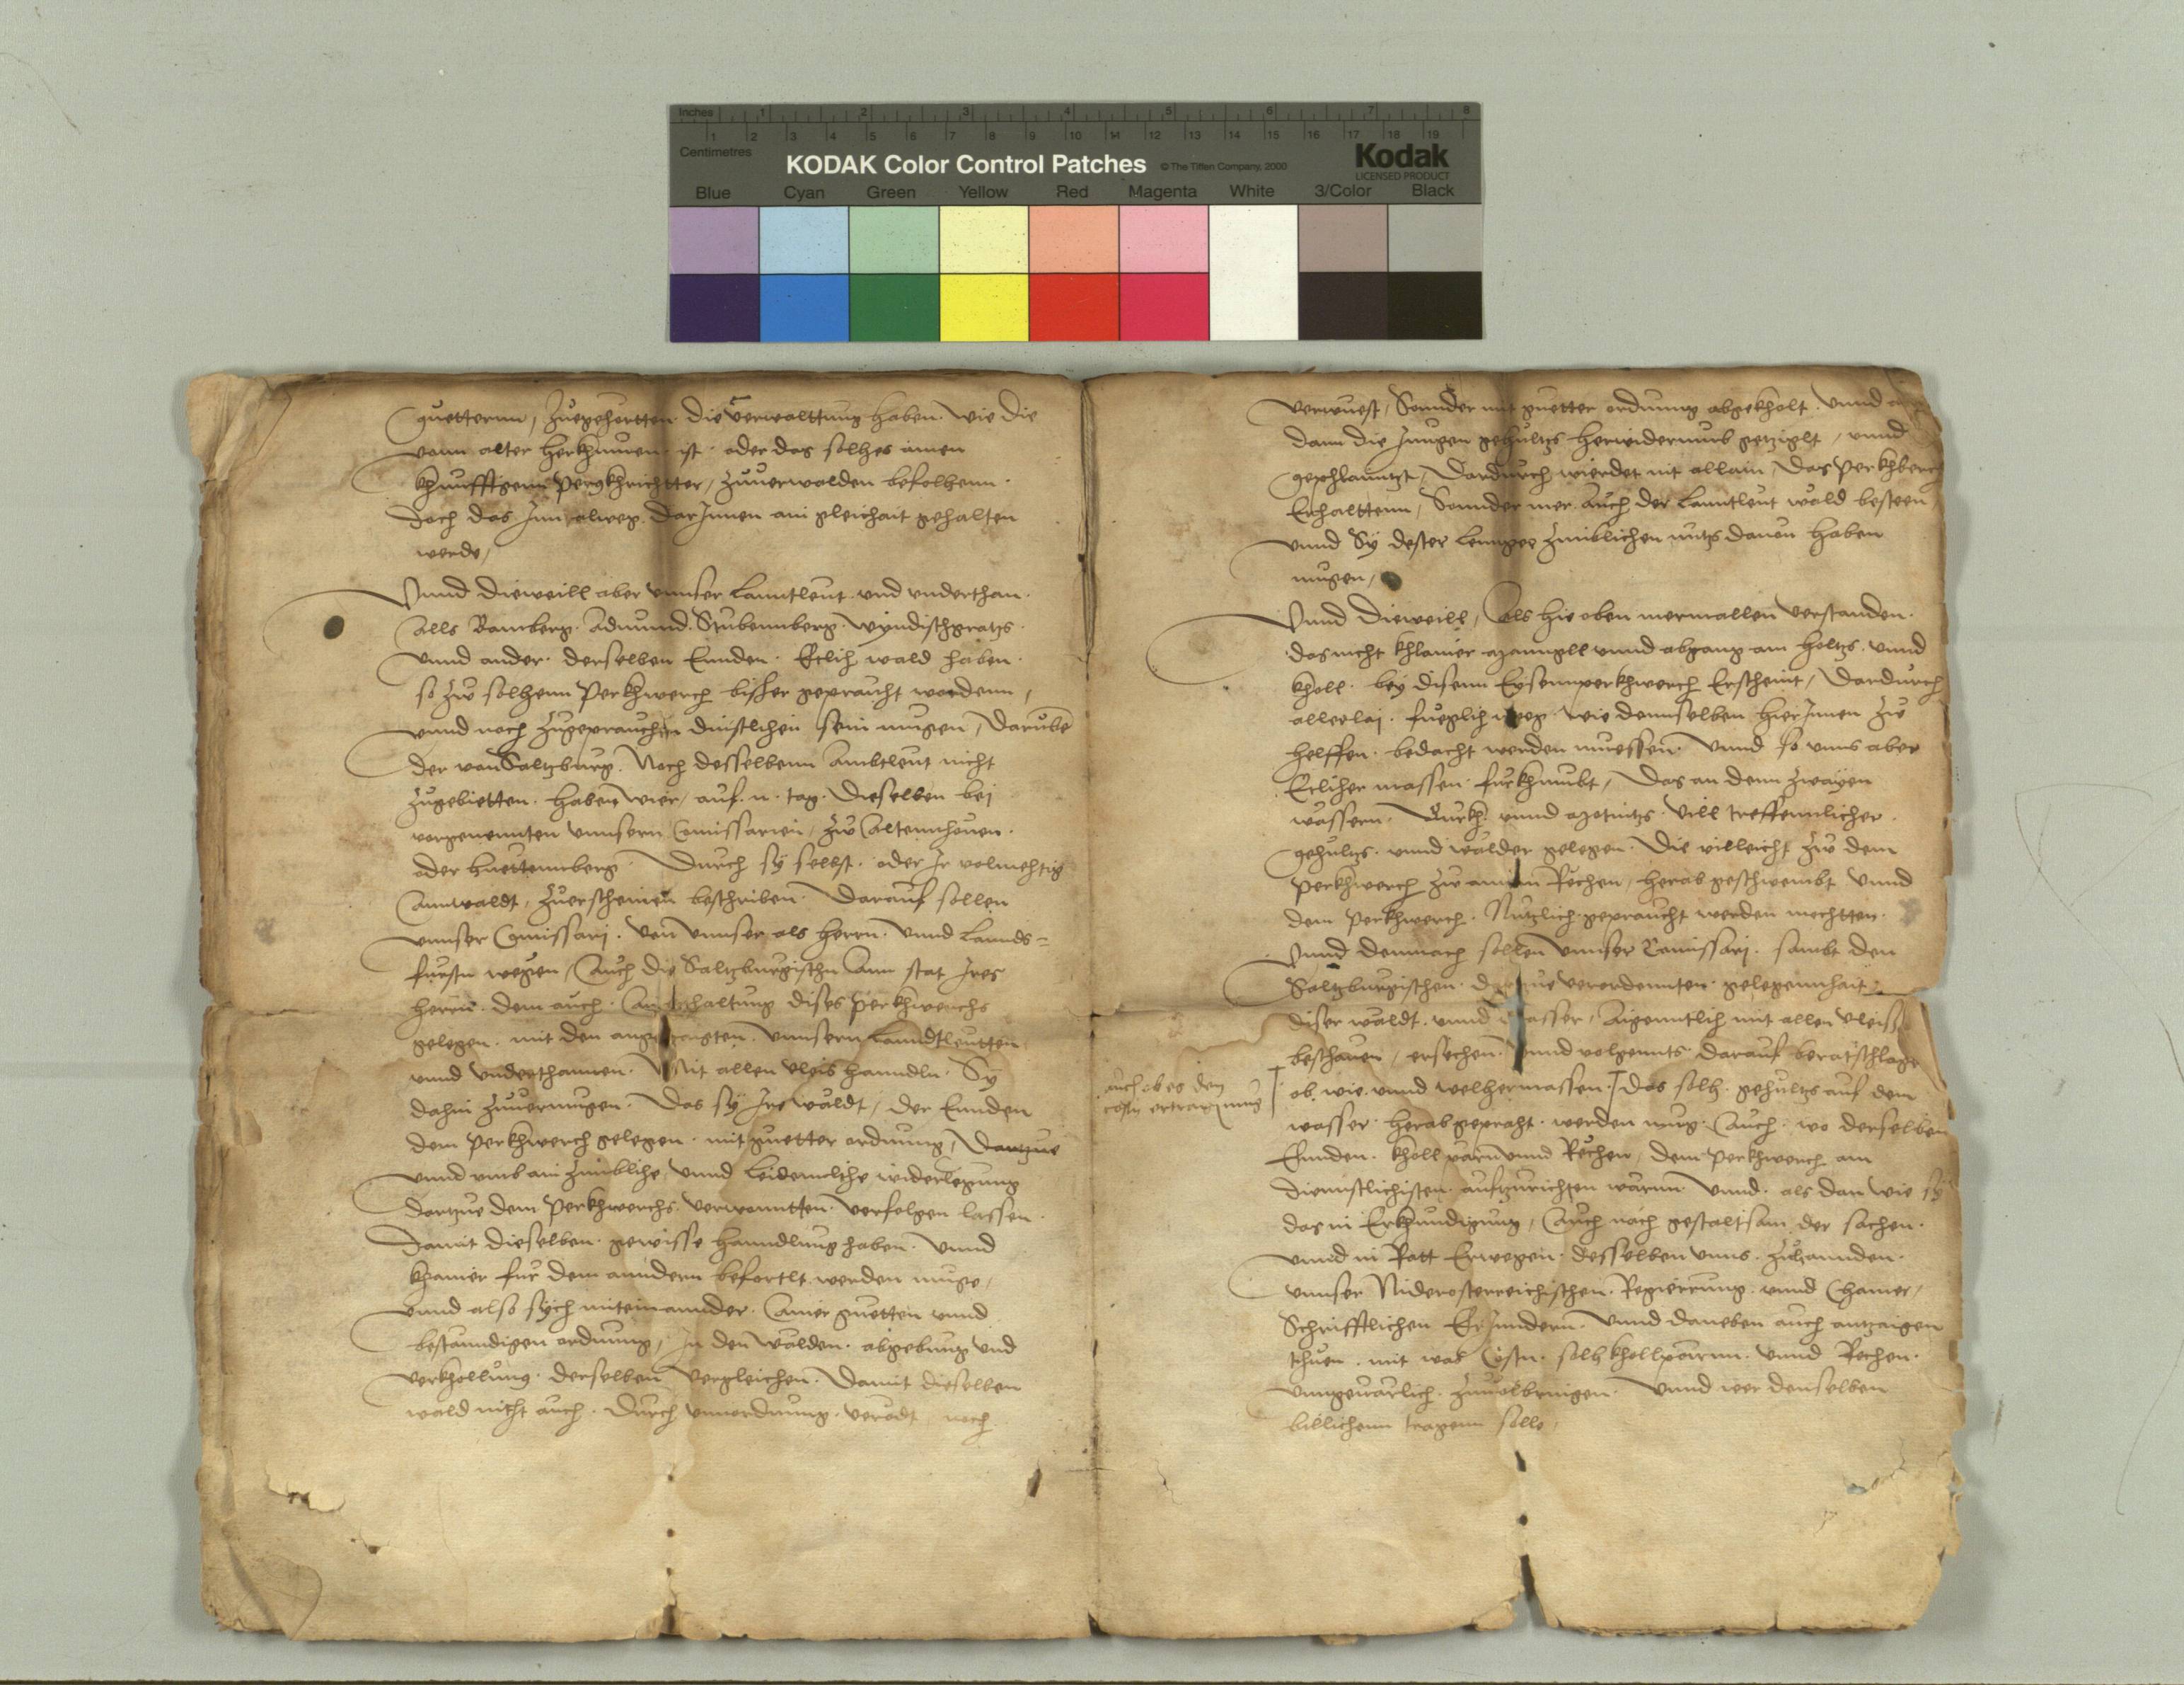 Inches 1 2 3 4 5 6 7 8
1 2 3 4 5 6 7 8 9 10 11 12 13 14 15 16 17 18 19
Centimetres
KODAK Color Control Patches © The Tiffen Company, 2000 Kodak
LICENSED PRODUCT
Blue Cyan Green Yellow Red Magenta White 3/Color Black
guettern, zuegehortten die verwalttung haben. wie die
vonn alter herkhumen ist. oder das solhes ainen
khunfftigenn Pergkhrichtter, zuuerwalden befolhenn.
doch das Inn alweg. dar Innen ain gleichait gehalten
werde,
Unnd dieweill aber unnser Lanntleut und underthan.
alls Bamberg. Admund. Stubennberg. Wyndischgratz.
unnd ander. derselben Ennden. Etlich wald haben.
so zw solhenn Perkhwerch bisher gepraucht wordenn,
unnd noch zugeprauchen dinstlichen sein mugen, darube
der von Saltzburg. Noch desselbenn Ambtleut nicht
zugebietten. haben wier, auf. n. tag. dieselben bei
vorgenennten unnsern Comissarien, zw Altennhouen.
oder huettennberg. durch sy selbst. oder Ir volmehtig
Annwaldt, zuerscheinen beschriben. darauf sollen
unnser Comissari. von unnser als herrn. unnd Lannds=
fursten wegen, Auch die Saltzburgischn Ann stat Ires
herrn. dem auch. An erhaltung dises Perkhwerchs
gelegen. mit den unnsern Lanndtleutten
unnd underthannen. Mit allen vleis hanndln. Sy
dahin zuuermugen. das sy Ire waldt, der Ennden
dem Perkhwerch gelegen. mit guetter ordnung, dartzue
unnd umb ain zimbliche, unnd Leidennliche widerlegung
dartzue dem Perkhwerchs verwonntten. verfolgen lassen.
damit dieselben. gewisse hanndlung haben. unnd
khainer fur dem anndern befortlt werden muge,
unnd also sych miteinannder. Ainer guetten unnd
bestanndigen ordnung, In den walden. abgebung und
verkhollung. derselben vergleichen. damit dieselben
wald nicht auch. durch unnordnung. verodt, noch
verwuest, Sonnder mit guetter ordnung abgekholt. unnd
dann die Jungen gehultz herwiderumb getziglt, unnd
gephlanntzt, dardurch wierdet nit allain, das Perkhberch
Erhalttenn, Sonnder mer. Auch der Lanntleut wald besteen,
unnd Sy dester Lennger zimblichen nutz dauon haben
mugen,
Unnd dieweill, Als hie oben mermallen verstanden.
das nicht khlainer manngll unnd abgang am holtz. unnd
kholl. bey disenn Eysennperkhwerch Erscheint, dardurch
allerlai. fueglich weg. wie dennselben hier Innen zw
helffen. bedacht werden muessen. unnd so uns aber
Etlicher massen furkhumbt, das an denn zwayen
wassern. Gurkh. unnd Motnitz. vill treffennlicher.
gehultz. unnd walder gelegen. die villeicht zw dem
Perkhwerch zw ainen Rechen, herab geschwembt unnd
dem Perkhwerch. Nutzlich gepraucht werden mechtten.
Unnd demnach sollen unnser Comissari. sambt den
Saltzburgischen. dartzue verordennten. gelegennhait
diser waldt. unnd wasser, Aigenntlich mit allen vleiss
beschauen, ersechen. unnd volgennts darauf beratschlage
auch ob es den
costn ertragn mug
ob. wie. unnd welhermassen. das solh. gehultz auf dem
wasser. herab gepraht. werden mug. Auch. wo derselben
Ennden. khollparn unnd Rechen, dem Perkhwerch am
diennstlichisten. aufzurichten warnn. unnd. als dan wie sy
das in Erkhundigung, Auch nach gestaltsam der sachen.
unnd in Ratt Erwegen. desselben unns. zuhannden.
unnser Niderosterreichischen. Regierrung. unnd Chamer,
Schrifftlichen Erynndern. unnd daneben auch antzaigen
thuen. mit was Costn. solh khollparnn. unnd Rechen.
unngeuarlich. zuuolbringen. unnd wer denselben
billichenn tragenn solle,